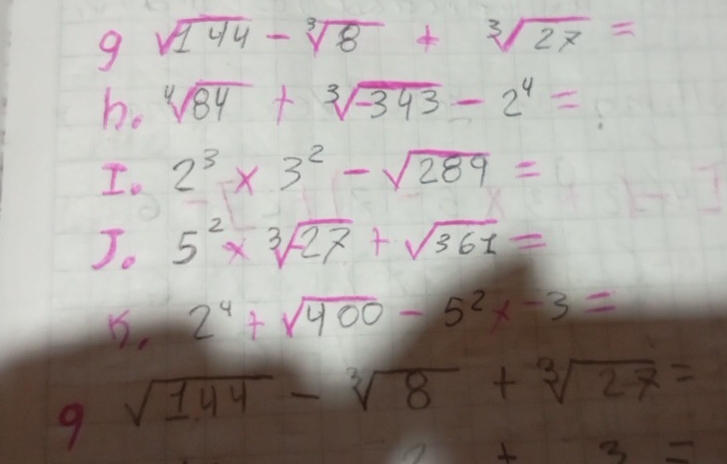 g √144 - ∛8 + ∛27 =
h. ∜84 + ∛-343 - 2⁴ =
I. 2³ × 3² - √289 =
J. 5² × ∛-27 + √361 =
K. 2⁴ + √400 - 5² × -3 =
g √144 - ∛8 + ∛27 =
2 + 3 =